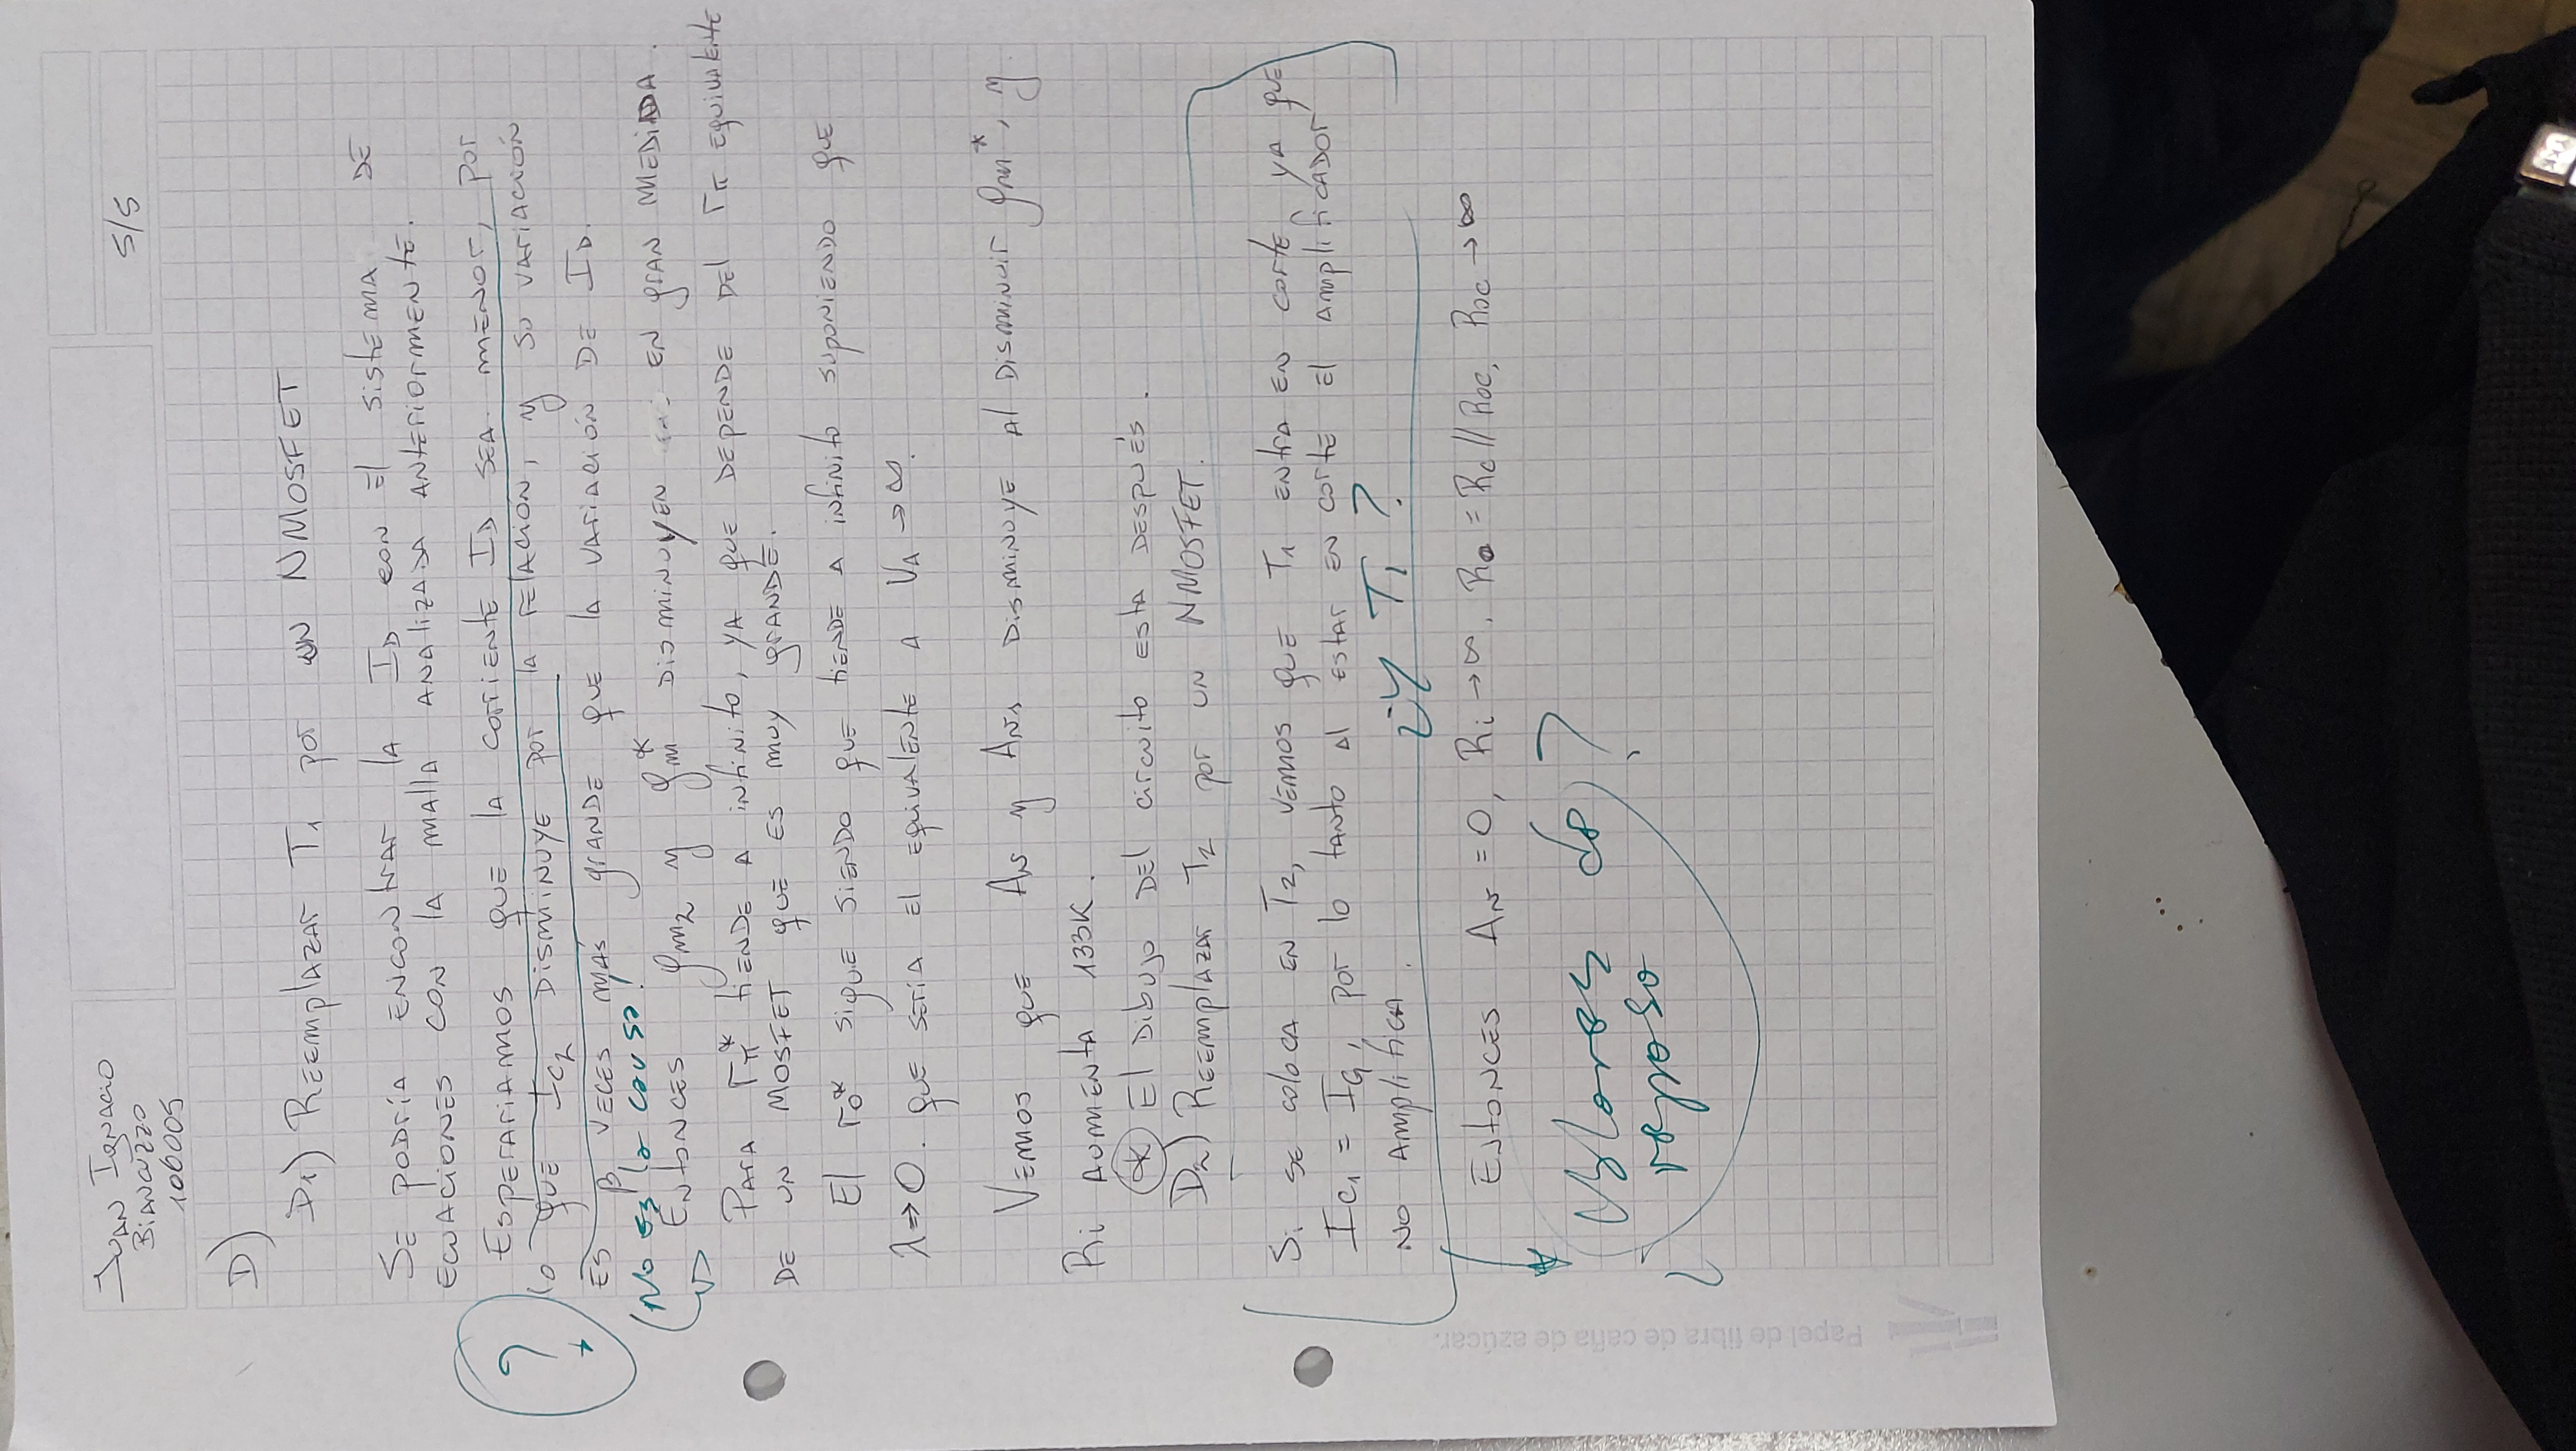 Juan Ignacio
Biancuzzo
106005
5/5
D)
D1) Reemplazar T1 por un NMOSFET
Se podría encontrar la ID con el sistema de
ecuaciones con la malla analizada anteriormente.
Esperariamos que la corriente ID sea menor, por
lo que IC2 disminuye por la relación, y su variación
es β veces más grande que la variación de ID.
?
No es la causa!
Entonces gm2 y gm* disminuyen en gran mediada.
Para rπ* tiende a infinito, ya que depende del rπ equivalente
de un MOSFET que es muy grande.
El ro* sigue siendo que tiende a infinito suponiendo que
λ→0. que sería el equivalente a VA→∞.
Vemos que Av y Avs disminuye al disminuir gm*, y
Ri aumenta 133K.
* El dibujo del circuito esta después.
D2) Reemplazar T2 por un NMOSFET.
Si se coloca en T2, vemos que T1 entra en corte ya que
IC1 = IG, por lo tanto al estar en corte el amplificador
no amplifica.
¿Y T1?
Entonces Av = 0, Ri→∞, Ro = Rc//Roc, Roc→∞
¿Valores de
reposo?
Papel de fibra de caña de azúcar.